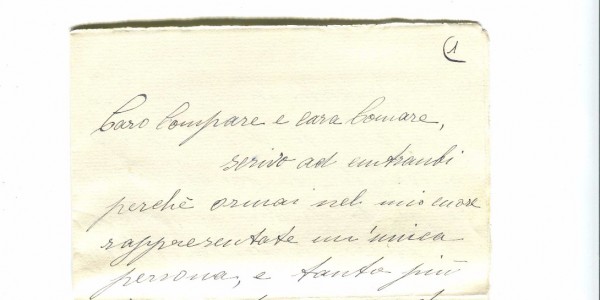 1
Caro Compare e cara Comare,
scrivo ad entrambi
perchè ormai nel mio cuore
rappresentate un'unica
persona, e tanto più